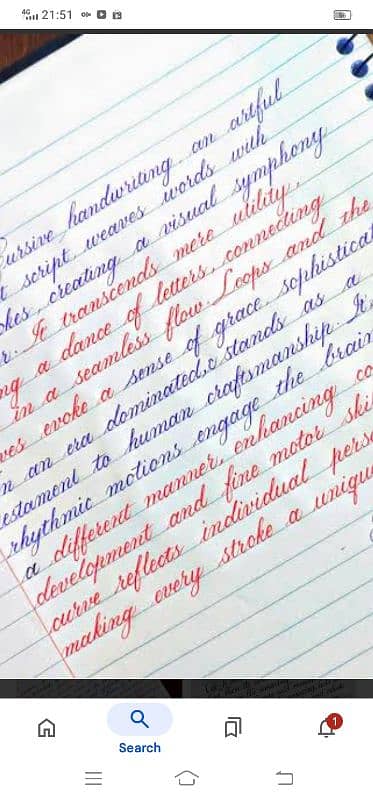 4G 21:51
ursive handwriting an artful
t script, weaves words with
okes, creating a visual symphony
r. It transcends mere utility,
ng a dance of letters, connecting
in a seamless flow. Loops and the
ves evoke a sense of grace, sophisticat
n an era dominated, stands as a
estament to human craftsmanship. It
rhythmic motions engage the brain
a different manner, enhancing co
development and fine motor skil
curve reflects individual perso
making every stroke a unique
1
Search